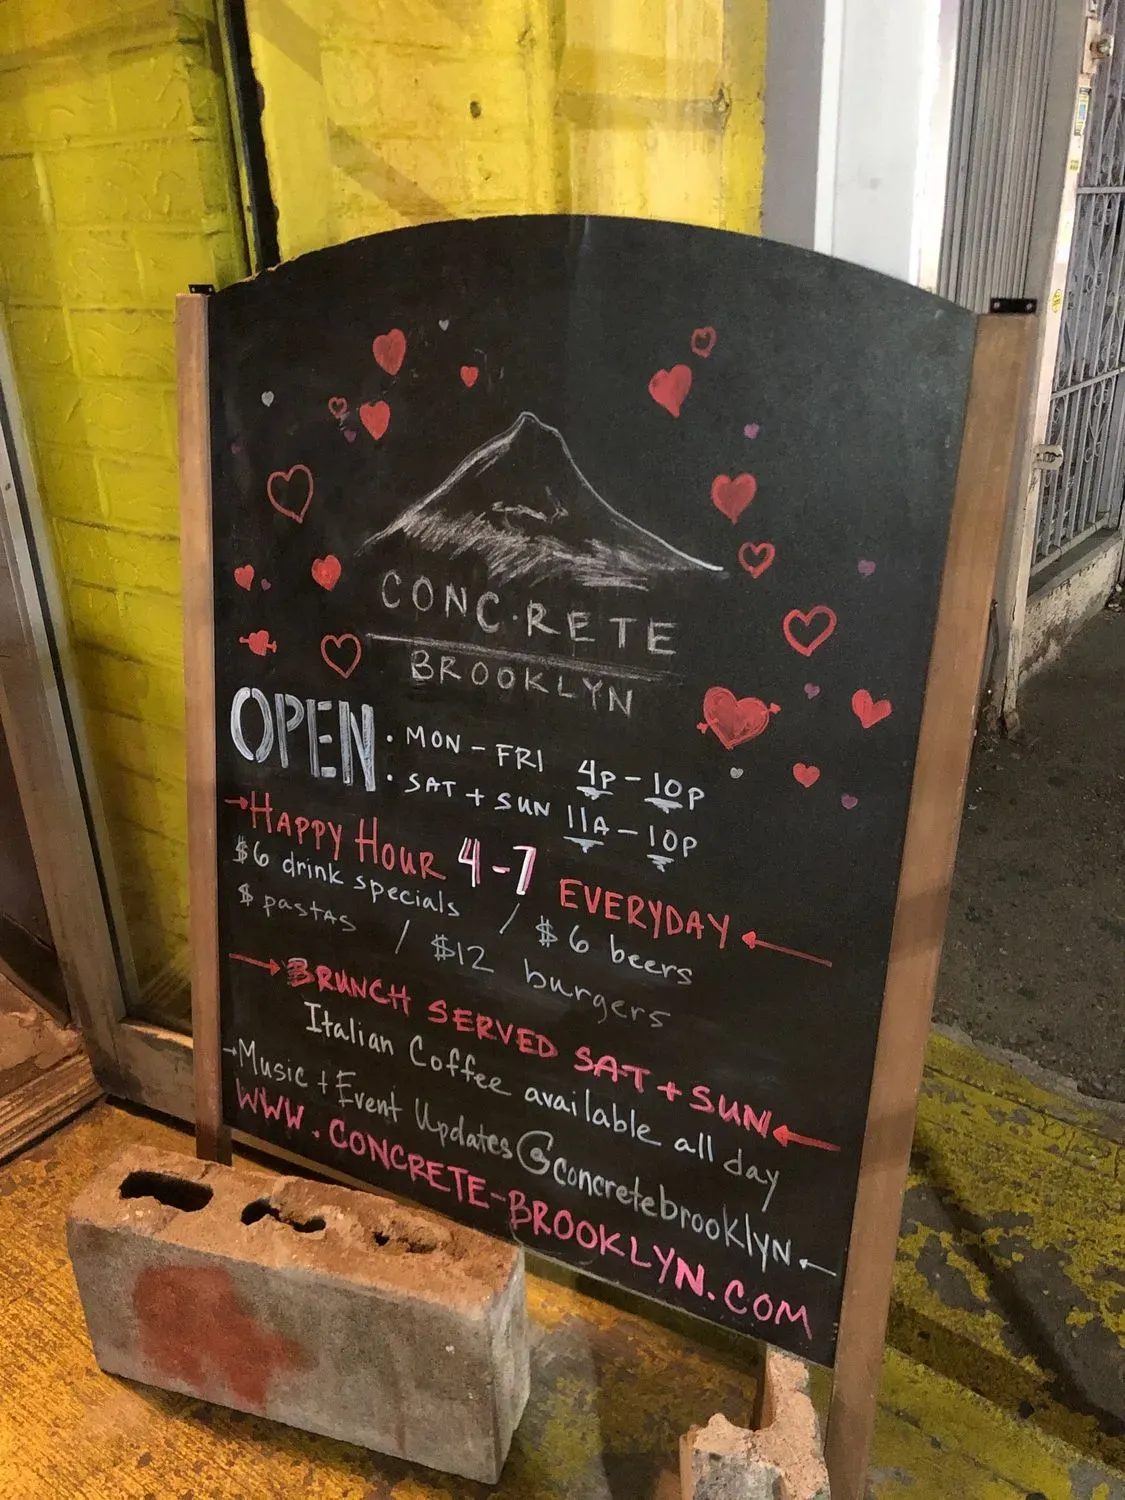 CONCRETE
BROOKLYN
OPEN • MON - FRI 4P - 10P
• SAT + SUN 11A - 10P
→ HAPPY HOUR 4-7 EVERYDAY ←
$6 drink specials / $6 beers
$ pastas / $12 burgers
→ BRUNCH SERVED SAT + SUN ←
Italian Coffee available all day
→ Music + Event Updates @concretebrooklyn ←
WWW.CONCRETE-BROOKLYN.COM